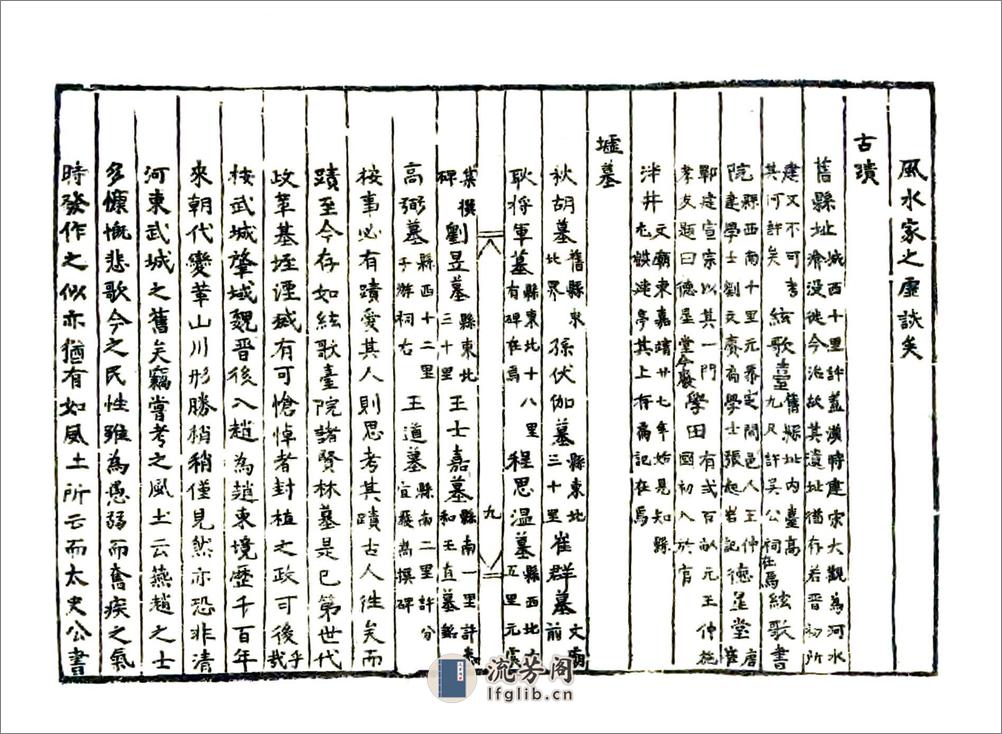 風水家之虛談矣
古蹟
舊縣址城西十里許蓋漢時建宋大觀為河水
淪没徙今治故其遺址猶存若晋初所
建又不可考
其何許矣絃歌臺舊縣址内臺高
九尺許吴公祠在焉絃歌書
院縣西南十里元至間邑人王仲
建學士劉文賡裔學士張起岩記德星堂唐崔
鄲建宣宗以其一門
孝友題曰德星堂今廢學田有弍百畝元王仲施
國初入於官
泮井文廟東嘉靖廿七年始見知縣
尤建亭其上有為記在焉
墟墓
秋胡墓舊縣東
北界孫伏伽墓縣東北
三十里崔群墓文廟
前
耿将軍墓縣東北十八里
有碑在焉程思温墓縣西北六
五里元
集撰
碑劉昱墓縣東北
三十里王士嘉墓縣南一里許
和王直墓銘
高弼墓縣西十二里
子游祠右王道墓縣南二里許分
宜嚴嵩撰碑
按事必有蹟愛其人則思考其蹟古人徃矣而
蹟至今存如絃歌臺院諸賢林墓是已第世代
改革基垤湮烕有可愴悼者封植之政可後乎哉
按武城肇城魏晋後入趙為趙東境歷千百年
來朝代變革山川形勝稍稍僅見然亦恐非清
河東武城之舊矣竊嘗考之風土云燕趙之士
多慷慨悲歌今之民性雖為愚弱而奮疾之氣
時發作之似亦猶有如風土所云而太史公書
九
流芳阁
lfglib.cn